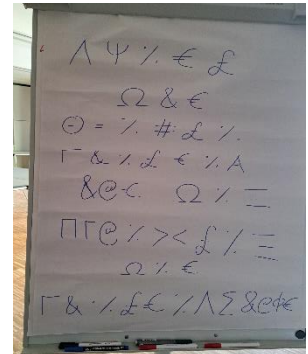 Λ Ψ % € £
Ω & €
Θ = % # £ %
Γ & % £ € % A
& @ < Ω % Ξ
Π Γ @ % > < £ % Ξ
Ω % €
Γ & % £ € % Λ Σ & @ Φ €